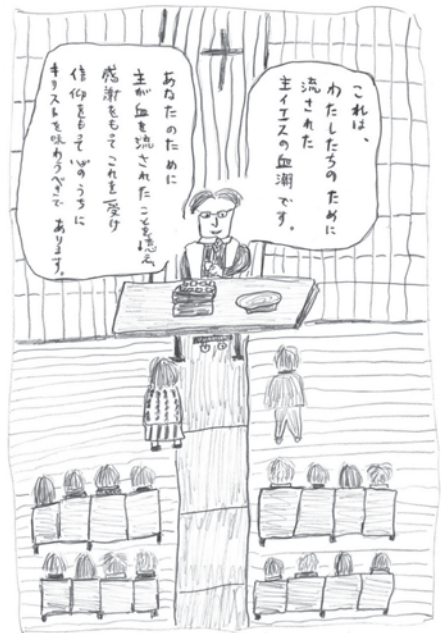 これは、
わたしたちのために
流された
主イエスの血潮です。
あなたのために
主が血を流されたことを憶え、
感謝をもってこれを受け
信仰をもって心のうちに
キリストを味わうべきであります。